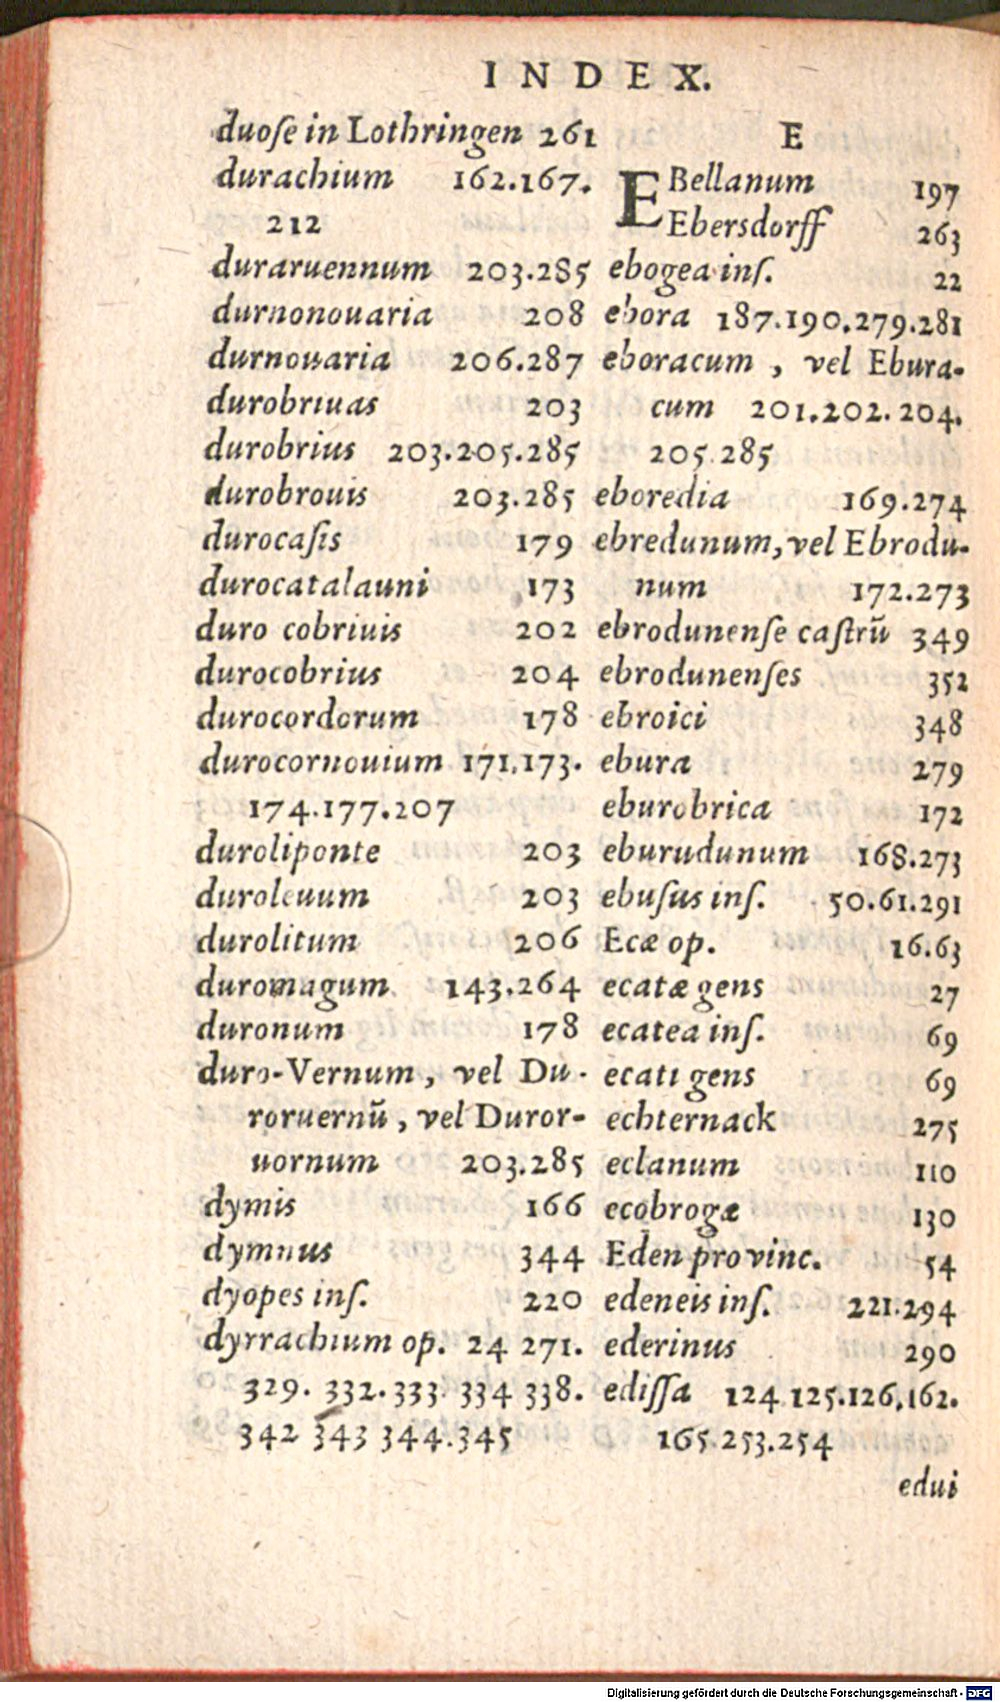 INDEX.
duoſe in Lothringen 261
durachium 162.167.
212
duraruennum 203.285
durnonouaria 208
durnouaria 206.287
durobriuas 203
durobrius 203.205.285
durobrouis 203.285
durocaſis 179
durocatalauni 173
duro cobriuis 202
durocobrius 204
durocordorum 178
durocornouium 171.173.
174.177.207
duroliponte 203
duroleuum 203
durolitum 206
duromagum 143.264
duronum 178
duro-Vernum, vel Du-
roruernũ, vel Duror-
uornum 203.285
dymis 166
dymnus 344
dyopes inſ. 220
dyrrachium op. 24 271.
329. 332.333 334 338.
342 343 344.345
E
EBellanum 197
Ebersdorff 263
ebogea inſ. 22
ebora 187.190.279.281
eboracum, vel Ebura-
cum 201.202.204.
205.285
eboredia 169.274
ebredunum, vel Ebrodu-
num 172.273
ebrodunenſe caſtrũ 349
ebrodunenſes 352
ebroici 348
ebura 279
eburobrica 172
eburudunum 168.273
ebuſus inſ. 50.61.291
Ecæ op. 16.63
ecatæ gens 27
ecatea inſ. 69
ecati gens 69
echternack 275
eclanum 110
ecobrogæ 130
Eden provinc. 54
edeneis inſ. 221.294
ederinus 290
ediſſa 124 125.126.162.
165.253.254
edui
Digitalisierung gefördert durch die Deutsche Forschungsgemeinschaft - DFG